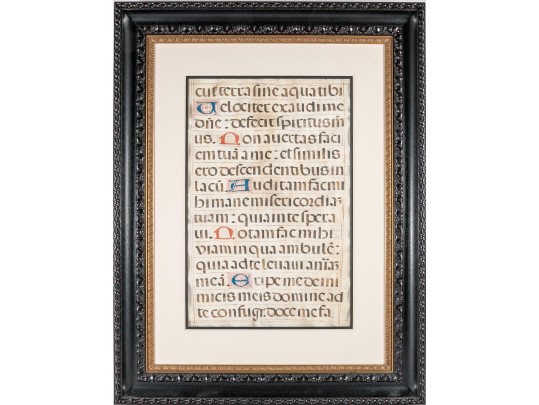 cut terra sine aqua tibi
Velociter exaudi me
dñe: defecit spiritus m̄
us. Non avertas faci
em tuā a me: et similis
ero descendentibus in
lacū. Auditam fac mi
hi mane misericordiaȝ
tuam: quia in te spera
vi. Notam fac mihi
viam in qua ambulē:
quia ad te levavi anīaȝ
meā. Eripe me de ini
micis meis domine ad
te confugi: doce me fa